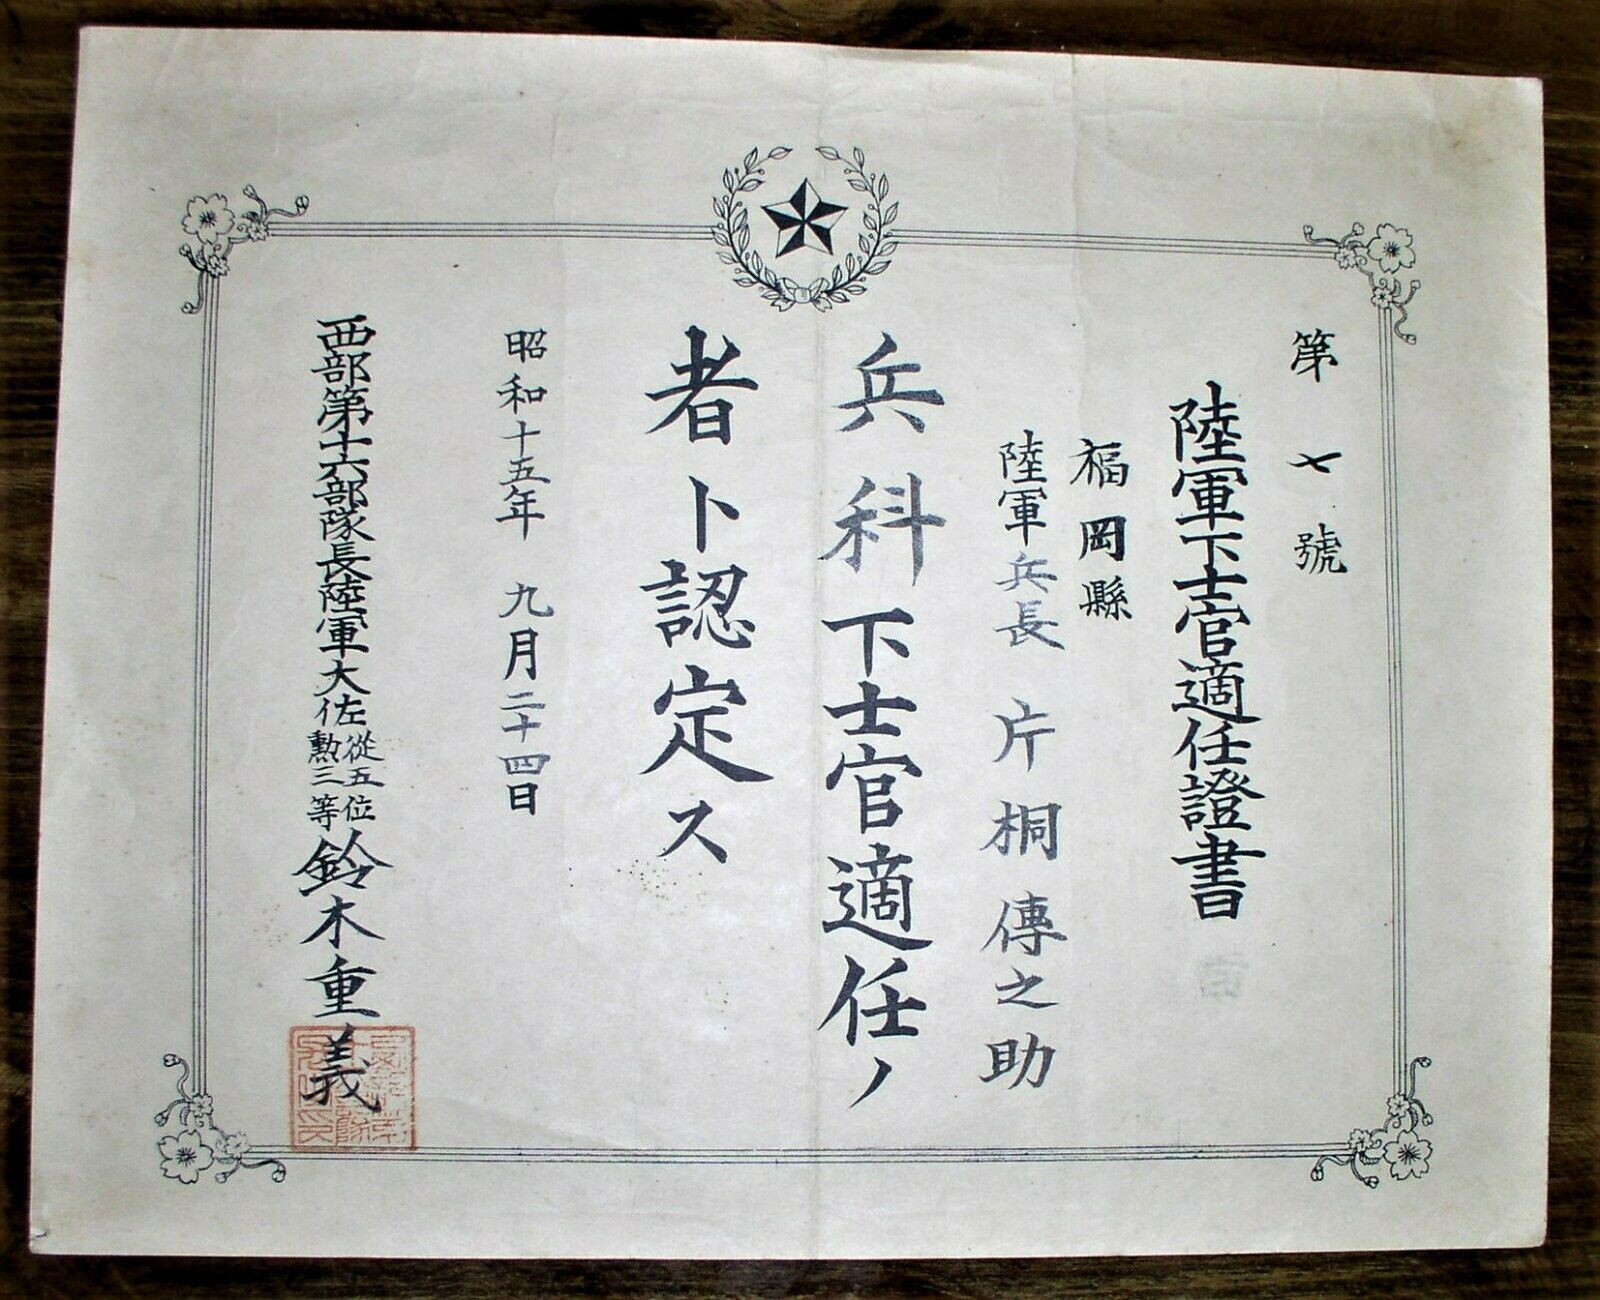 第七號
陸軍下士官適任證書
福岡縣
陸軍兵長 片桐傳之助
兵科下士官適任ノ
者ト認定ス
昭和十五年 九月二十四日
西部第十六部隊長陸軍大佐從五位勲三等鈴木重義